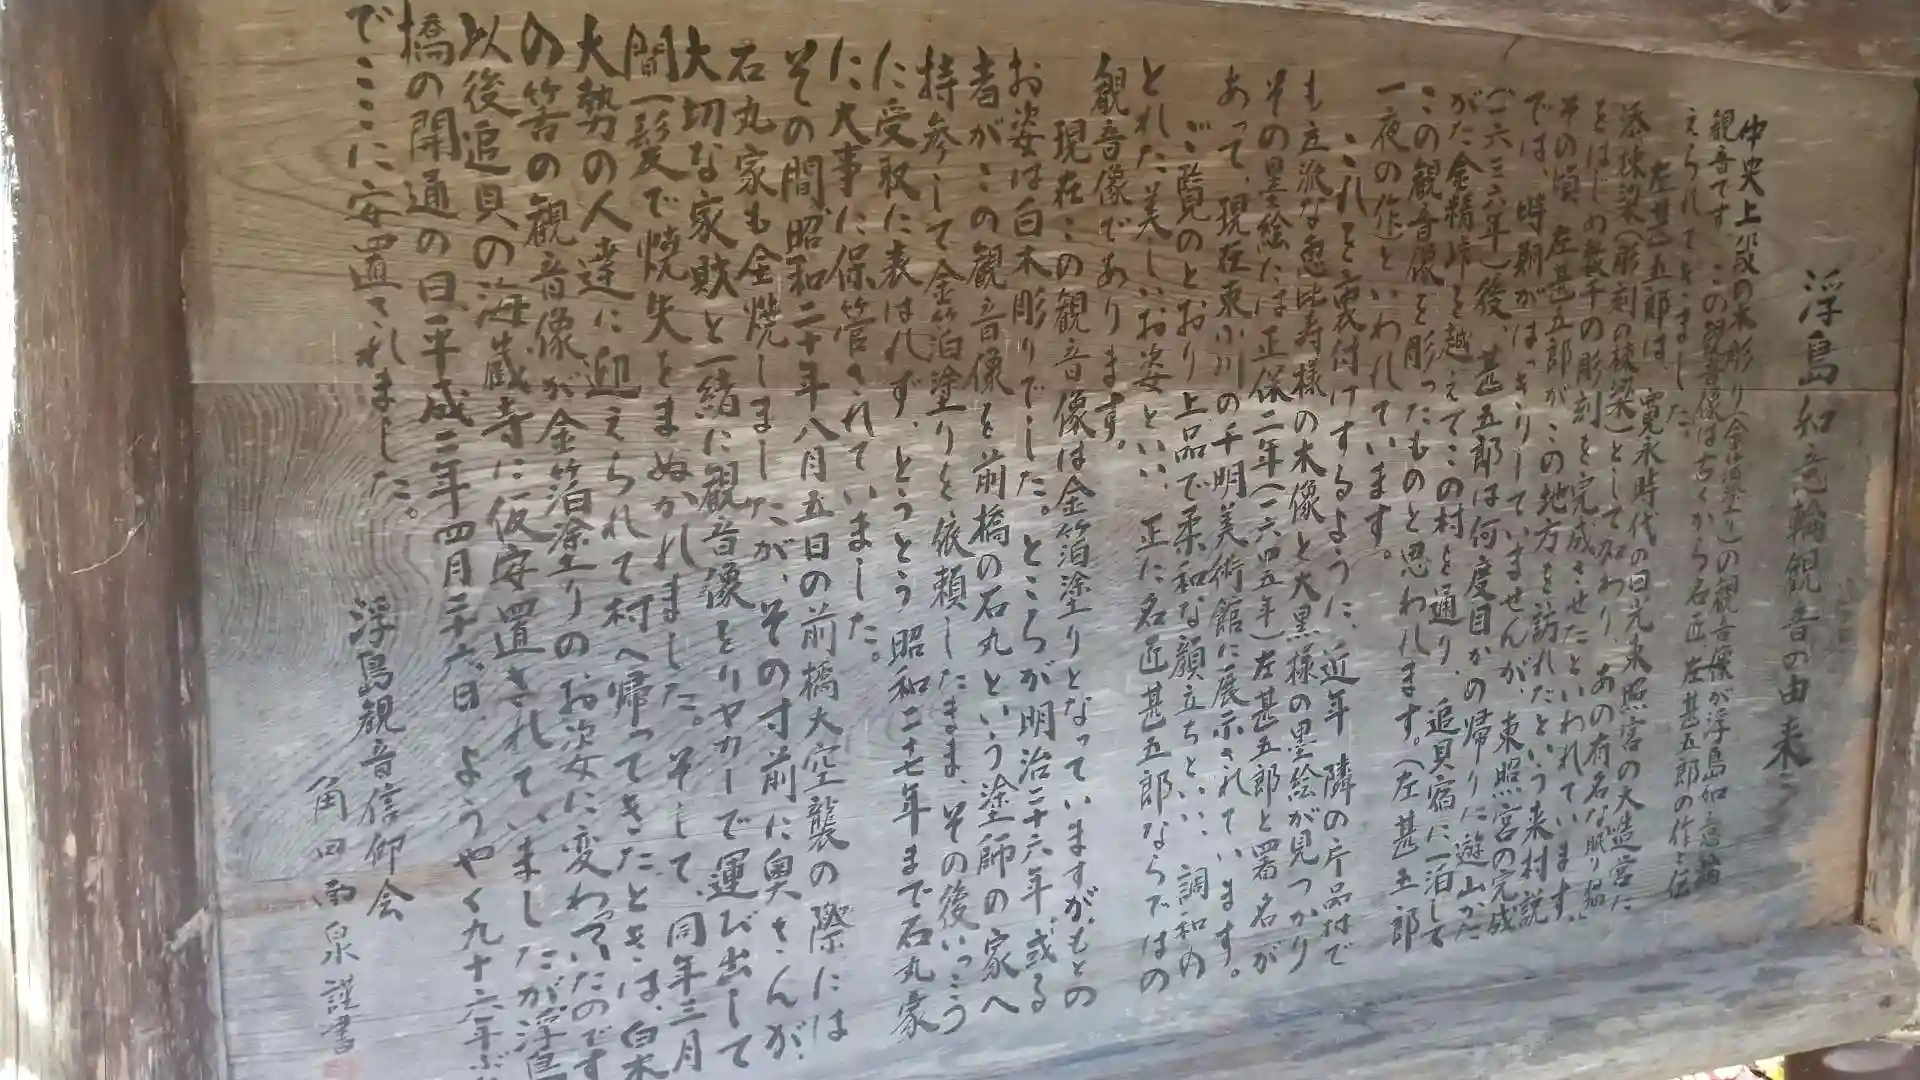 浮島如意輪観音の由来
中央上段の木彫り(金箔塗り)の観音像が浮島如意輪
観音です この観音像は古くから名匠、左甚五郎の作と伝
えられてきました。
左甚五郎は、寛永時代の日光東照宮の大造営に
添棟梁(彫刻の棟梁)として加わり、あの有名な眠り猫
をはじめ数千の彫刻を完成させたといわれています。
その頃、左甚五郎が、この地方を訪れたという来村説
では、時期がはっきりしていませんが、東照宮の完成
(一六三六年)後、甚五郎は何度目かの帰りに遊山かた
がた金精峠を越えてこの村を通り、追貝宿に一泊して
この観音像を彫ったものと思われます。(左甚五郎
一夜の作)といわれています。
これを裏付けするように、近年 隣の片品村で
も立派な恵比寿様の木像と大黒様の墨絵が見つかり
その墨絵には正保二年(一六四五年)左甚五郎と署名が
あって、現在東小川の千明美術館に展示されています。
ご覧のとおり 上品で柔和な顔立ちといい、調和の
とれた美しいお姿といい、正に名匠甚五郎ならではの
観音像であります。
現在この観音像は金箔塗りとなっていますが、もとの
お姿は白木彫りでした。ところが明治二十六年、或る
者がこの観音像を前橋の石丸という塗師の家へ
持参して金箔塗りを依頼したまま、その後いっこう
に受取に表はれず、とうとう昭和二十七年まで石丸家
に大事に保管されていました。
その間、昭和二十年八月五日の前橋大空襲の際には
石丸家も全焼しましたが、その寸前に奥さんが、
大切な家財と一緒に観音像をリヤカーで運び出して
間一髪で焼失をまぬかれました。そして、同年三月
大勢の人達に迎えられて村へ帰ってきたときは、白木
の筈の観音像が金箔塗りのお姿に変わっていたのです
以後追貝の海蔵寺に仮安置されていましたが浮島
橋の開通の日、平成二年四月二十六日、ようやく九十六年ぶり
でここに安置されました。
浮島観音信仰会
角田南泉 謹書